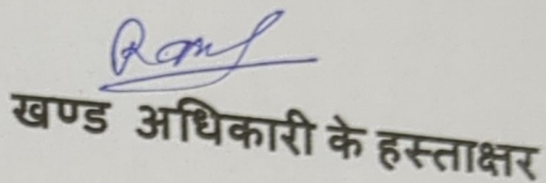 खण्ड अधिकारी के हस्ताक्षर